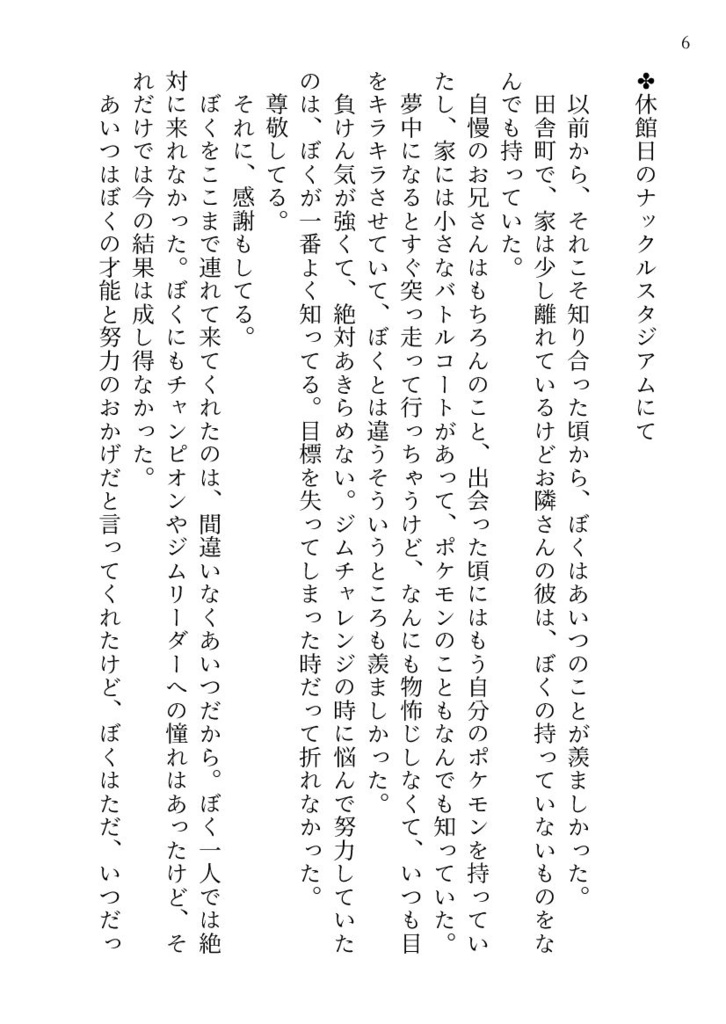 6
✤休館日のナックルスタジアムにて
以前から、それこそ知り合った頃から、ぼくはあいつのことが羨ましかった。
田舎町で、家は少し離れているけどお隣さんの彼は、ぼくの持っていないものをな
んでも持っていた。
自慢のお兄さんはもちろんのこと、出会った頃にはもう自分のポケモンを持ってい
たし、家には小さなバトルコートがあって、ポケモンのこともなんでも知っていた。
夢中になるとすぐ突っ走って行っちゃうけど、なんにも物怖じしなくて、いつも目
をキラキラさせていて、ぼくとは違うそういうところも羨ましかった。
負けん気が強くて、絶対あきらめない。ジムチャレンジの時に悩んで努力していた
のは、ぼくが一番よく知ってる。目標を失ってしまった時だって折れなかった。
尊敬してる。
それに、感謝もしてる。
ぼくをここまで連れて来てくれたのは、間違いなくあいつだから。ぼく一人では絶
対に来れなかった。ぼくにもチャンピオンやジムリーダーへの憧れはあったけど、そ
れだけでは今の結果は成し得なかった。
あいつはぼくの才能と努力のおかげだと言ってくれたけど、ぼくはただ、いつだっ